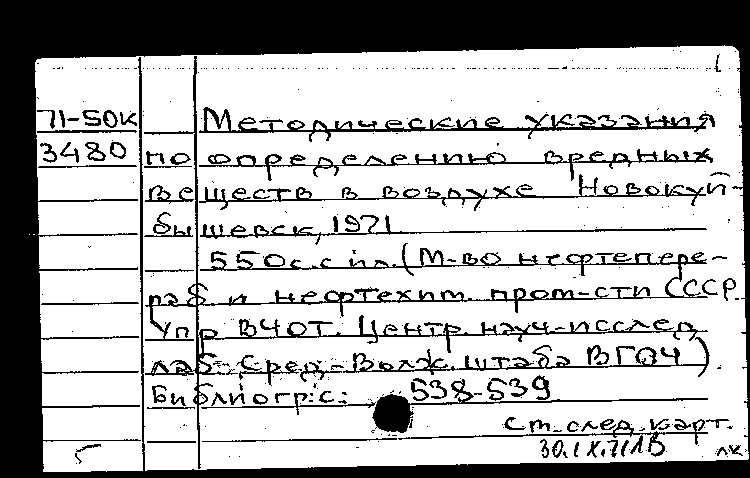 71-50к Методические указания
3480 по определению вредных
веществ в воздухе Новокуй-
бышевск, 1971
550с. с ил. (М-во нефтепере-
раб. и нефтехим. пром-сти СССР.
Упр ВЧОТ. Центр. науч-исслед
лаб. Сред.-Волж. штаба ВГСЧ).
Библиогр: с: 538-539
Ст. след. карт.
30.IX.71
лк